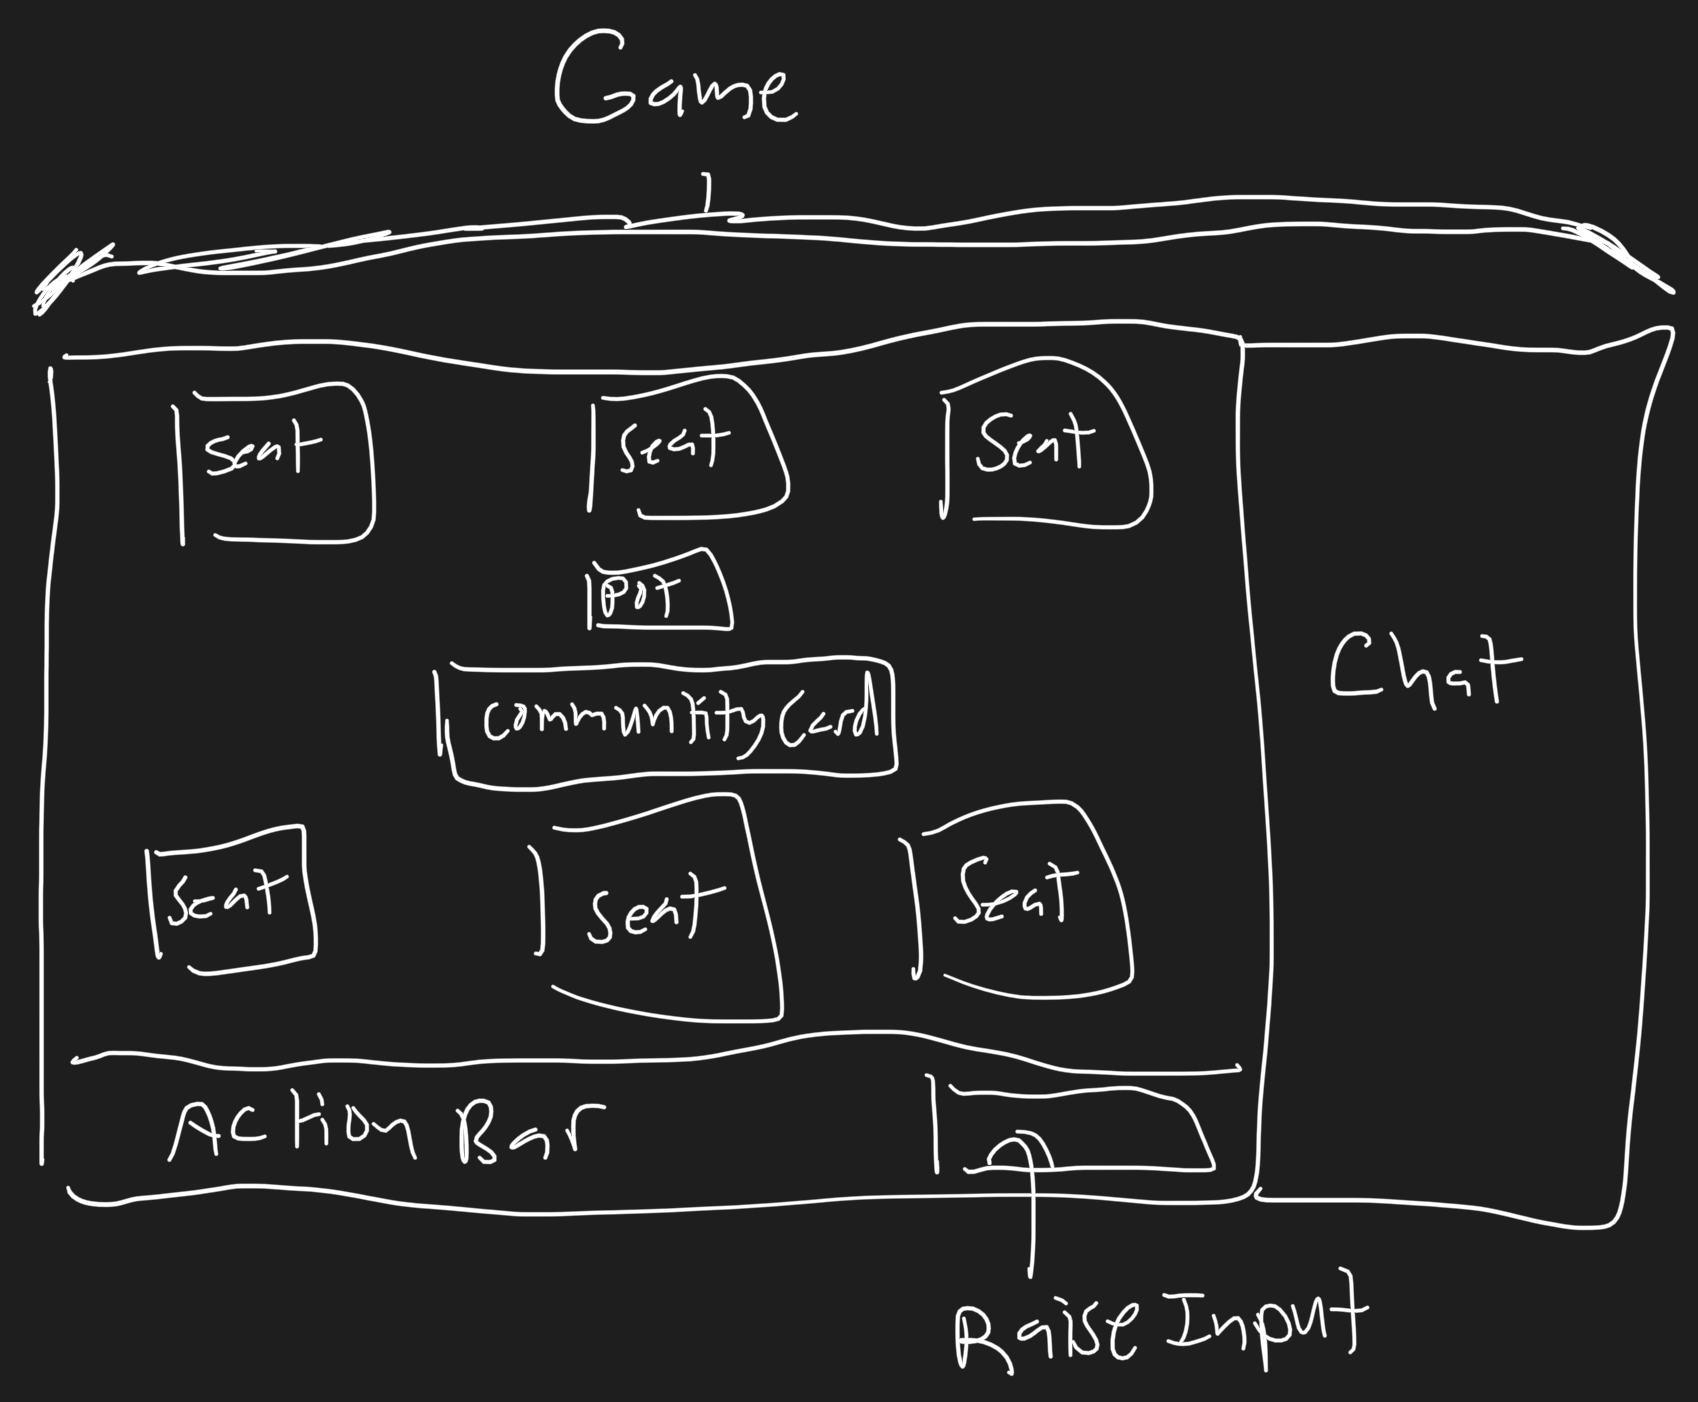 Game
Seat
Seat
Seat
Pot
Community Card
Chat
Seat
Seat
Seat
Action Bar
Raise Input